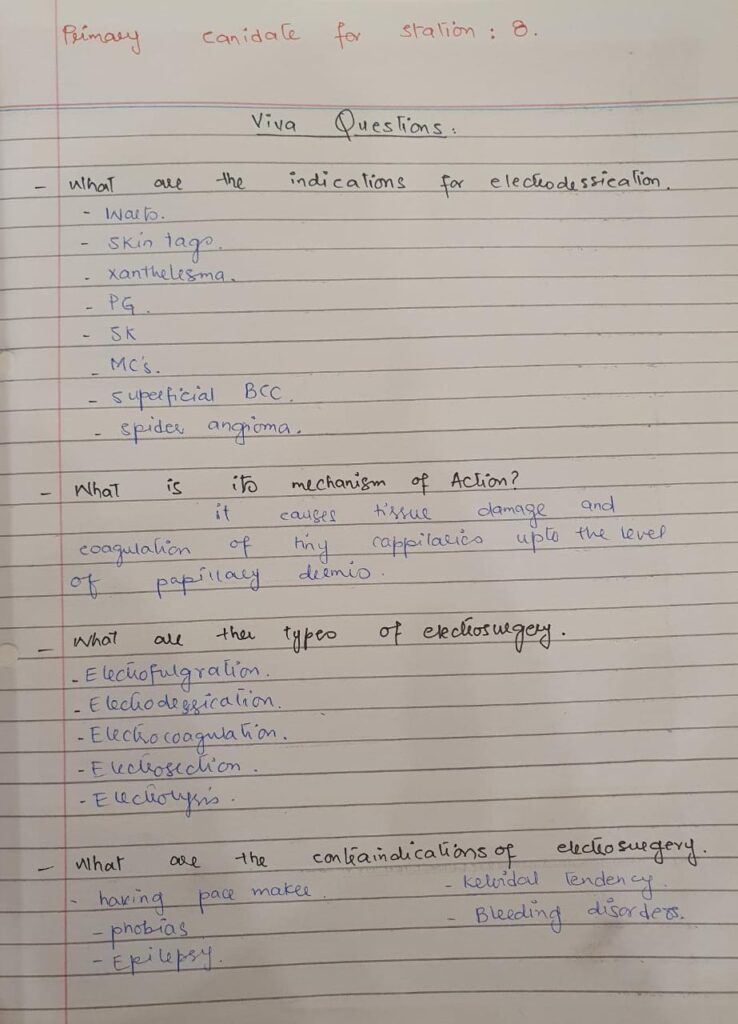 Primary canidate for station : 8.
Viva Questions:
- What are the indications for electrodessication.
- Warts.
- Skin tags.
- xanthelesma.
- PG.
- SK
- MC's.
- superficial BCC.
- spider angioma.
- What is its mechanism of Action?
it causes tissue damage and
coagulation of tiny cappilaries upto the level
of papillary dermis.
- What are ther types of electrosurgery.
- Electrofulgration.
- Electrodessication.
- Electrocoagulation.
- Electrosection.
- Electrolysis.
- What are the contraindications of electrosurgery.
- having pace maker. - Keloidal tendency.
- phobias - Bleeding disorders.
- Epilepsy.